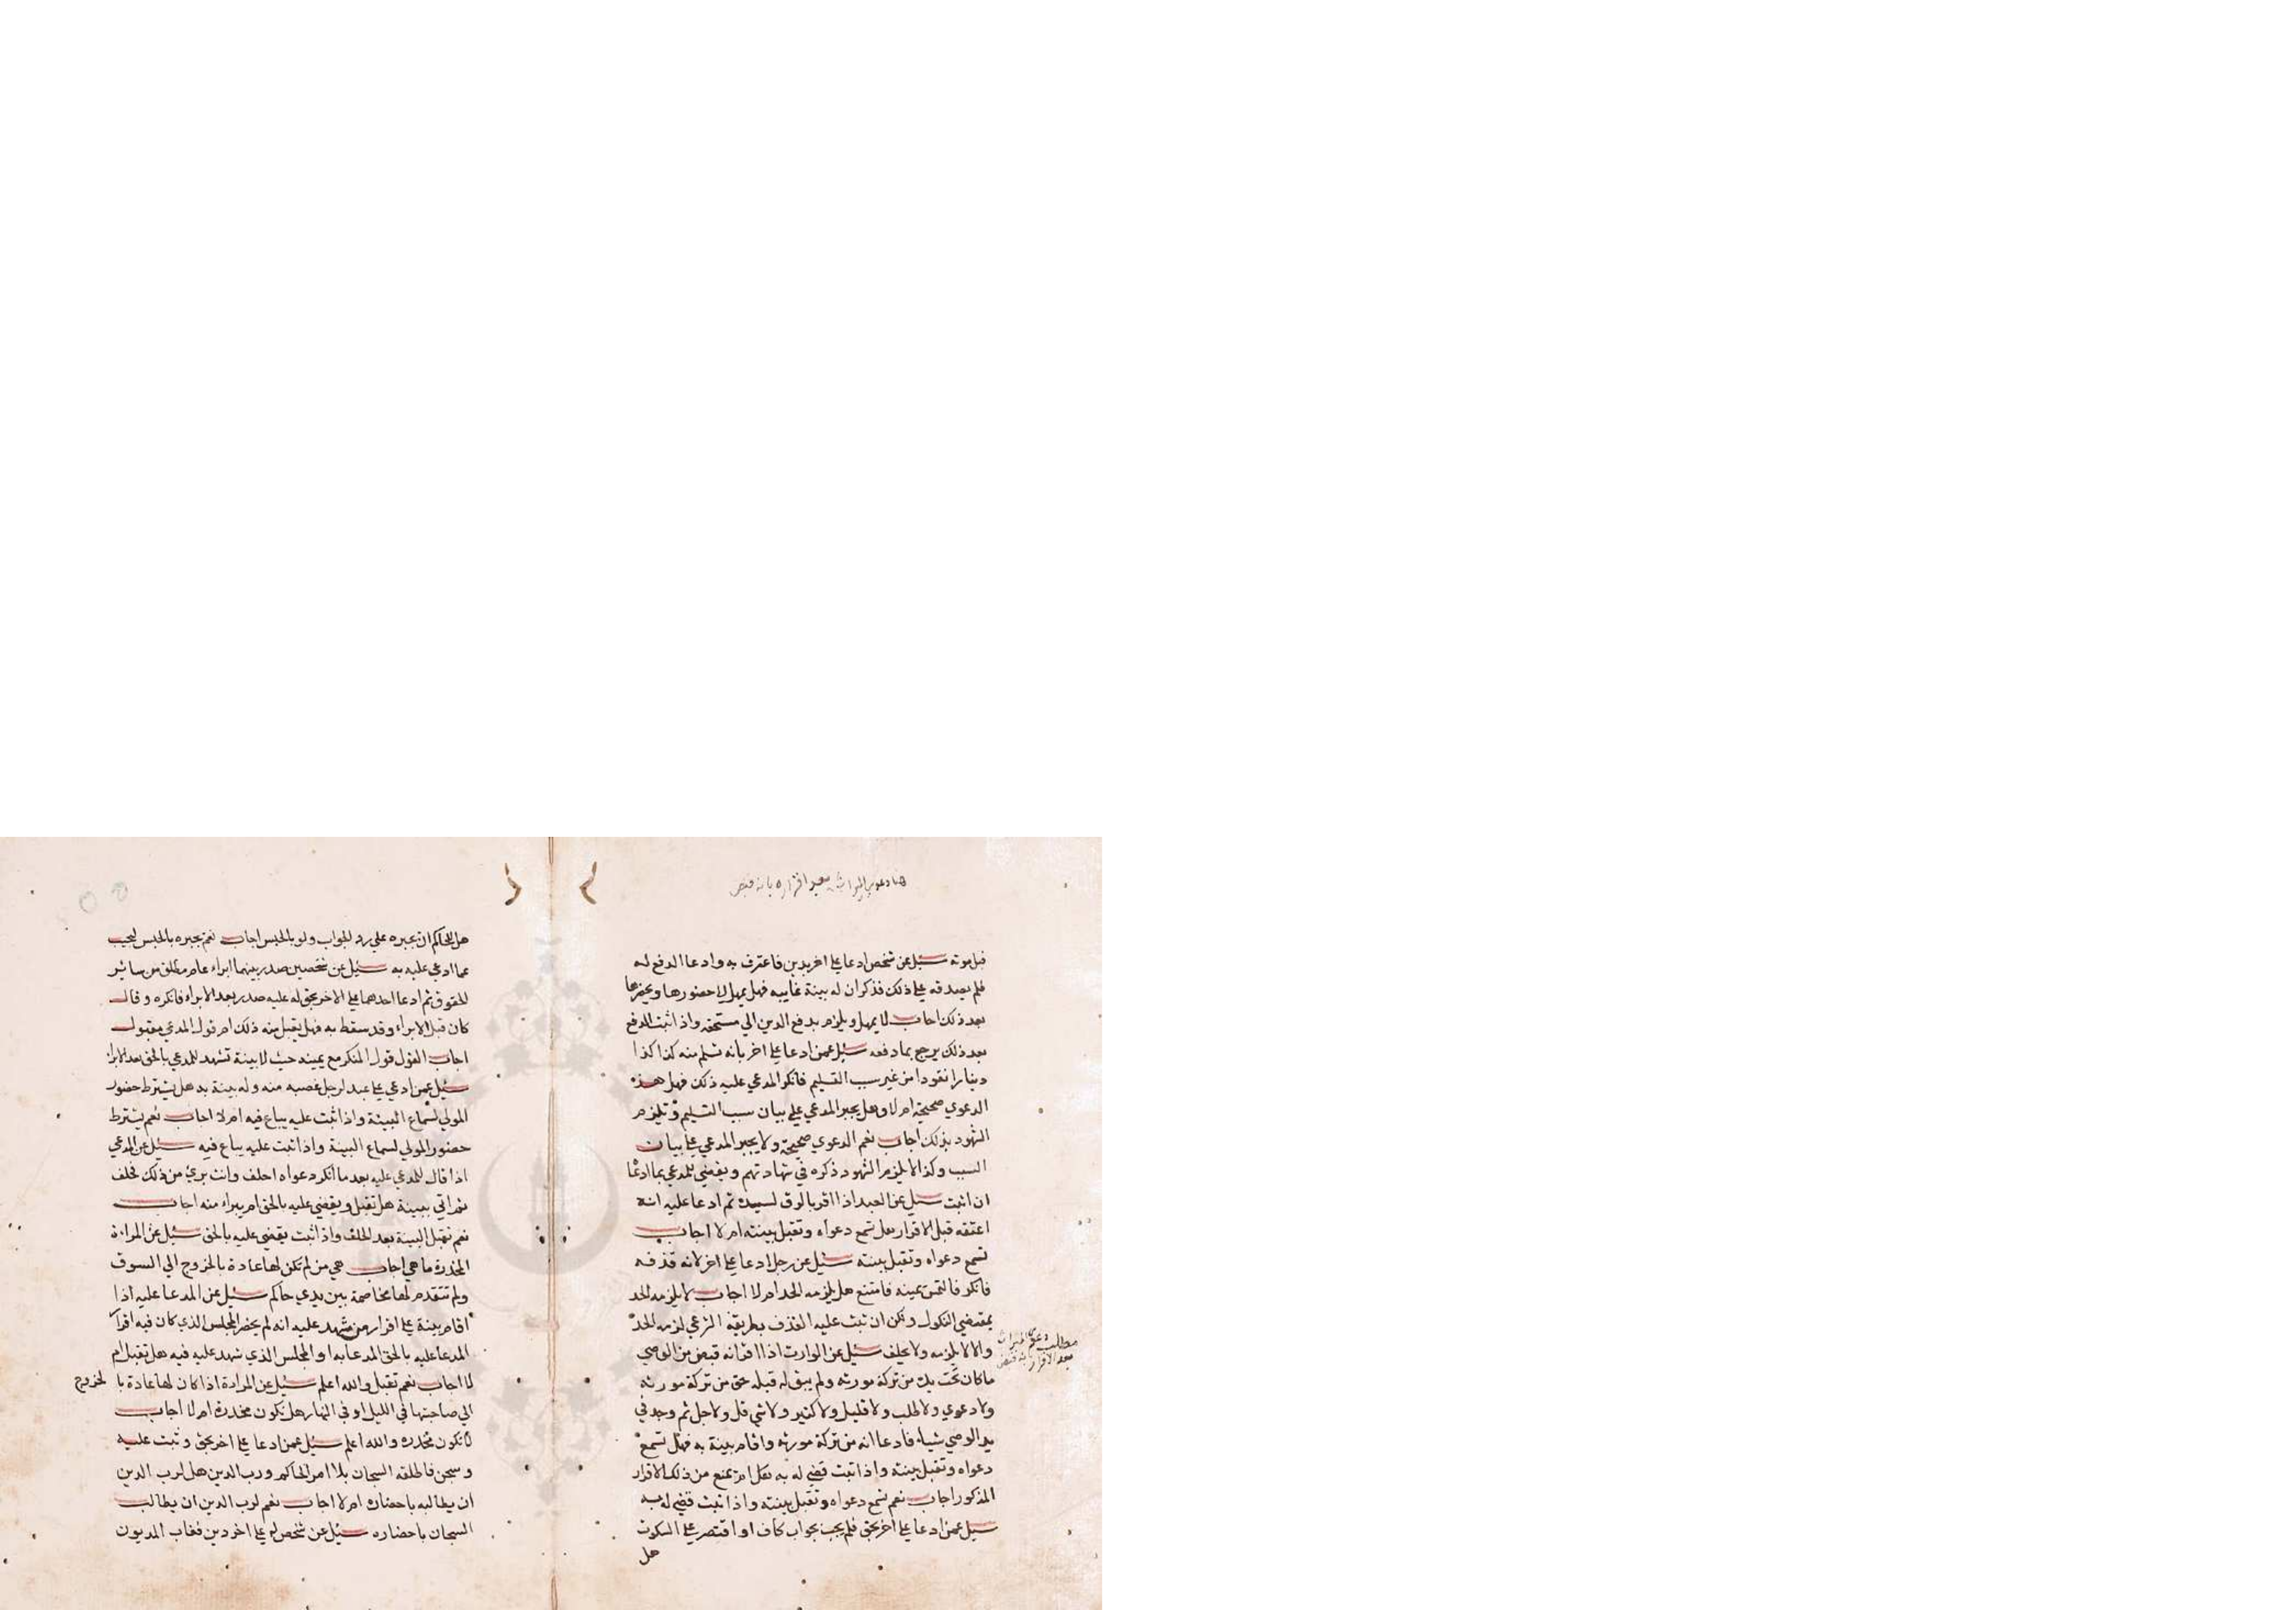 هنا دعوي الوارث بعد اقراره بانه قبض
قبل موته سيل عن شخص ادعا علي اخر بدين فاعترف به وادعا الدفع له
فلم يصدقه علي ذلك فذكر ان له بينة غايبه فهل يمهل لاحضورها ويحضرها
بعد ذلك اجاب لا يمهل ويلزم بدفع الدين الي مستحقه واذا اثبت الدفع
بعد ذلك يرجع بما دفعه سيل عمن ادعا علي اخر بانه تسلم منه كذا كذا
دينارا نقودا من غير سبب التسليم فانكر المدعي عليه ذلك فهل هذه
الدعوي صحيحة ام لا وهل يجبر المدعي علي بيان سبب التسليم وتلزم
الشهود بذلك اجاب نعم الدعوي صحيحة ولا يجبر المدعي علي بيان
السبب وكذا لا يلزم الشهود ذكره في شهادتهم ويقضي للمدعي بما ادعا
ان اثبت سيل عن العبد اذا اقر بالرق لسيده ثم ادعا عليه انه
اعتقه قبل الاقرار هل تسمع دعواه وتقبل بينته ام لا اجاب
تسمع دعواه وتقبل بينته سيل عن رجل ادعا علي اخر لانه قذفه
فانكر فالتمس يمينه فامتنع هل يلزمه الحد ام لا اجاب لا يلزمه الحد
بمقتضي النكول ولكن ان ثبت عليه القذف بطريقة الشرعي لزمه الحد
والا لا يلزمه ولا يحلف سيل عن الوارث اذا اقر انه قبض من الوصي
ما كان تحت يده من تركة مورثه ولم يبق له قبله حق من تركة مورثه
ولا دعوي ولا طلب ولا قليل ولا كثير ولا شي قل ولا جل ثم وجد في
يد الوصي شياء فادعا انه من تركة مورثه واقام بينة به فهل تسمع
دعواه وتقبل بينته واذا ثبت قضي له به هل ام يمنع من ذلك الاقرار
المذكور اجاب نعم تسمع دعواه وتقبل بينته واذا ثبت قضي له به
سيل عمن ادعا علي اخر بحق فلم يجب بجواب كاف او اقتصر علي السكوت
هل
مطلب دعوي الميراث
بعد الاقرار بانه قبض
هل للحاكم ان يجبره علي رد الجواب ولو بالحبس اجاب نعم يجبره بالحبس ليجيب
عما ادعي عليه به سيل عن شخصين صدر بينهما ابراء عام مطلق من ساير
الحقوق ثم ادعا احدهما علي الاخر بحق له عليه صدر بعد الابراء فانكره وقال
كان قبل الابراء وقد سقط به فهل يقبل منه ذلك ام قول المدعي مقبول
اجاب القول قول المنكر مع يمينه حيث لا بينة تشهد للمدعي بالحق بعد الابرا
سيل عمن ادعي علي عبد لرجل غصبه منه وله بينة به هل يشترط حضور
المولي لسماع البينة واذا ثبت عليه يباع فيه ام لا اجاب نعم يشترط
حضور المولي لسماع البينة واذا ثبت عليه يباع فيه سيل عن المدعي
اذا قال للمدعي عليه بعد ما انكر دعواه احلف وانت بري من ذلك فحلف
ثم اتي ببينة هل تقبل ويقضي عليه بالحق ام يبراء منه اجاب
نعم تقبل البينة بعد الحلف واذا ثبت يقضي عليه بالحق سيل عن المراءة
المخدرة ما هي اجاب هي من لم تكن لها عادة بالخروج الي السوق
ولم تتقدم لها مخاصمة بين يدي حاكم سيل عن المدعا عليه اذا
اقام بينة علي اقرار من شهد عليه انه لم يحضر المجلس الذي كان فيه اقرار
المدعا عليه بالحق المدعا به او المجلس الذي شهد عليه فيه هل تقبل ام
لا اجاب نعم تقبل والله اعلم سيل عن المراة اذا كان لها عادة با لخروج
الي صاحبتها في الليل او في النهار هل تكون مخدرة ام لا اجاب
لا تكون مخدره والله اعلم سيل عمن ادعا علي اخر بحق وثبت عليه
وسجن فاطلقه السجان بلا امر الحاكم ورب الدين هل لرب الدين
ان يطالبه باحضاره ام لا اجاب نعم لرب الدين ان يطالب
السجان باحضاره سيل عن شخص له علي اخر دين فغاب المديون